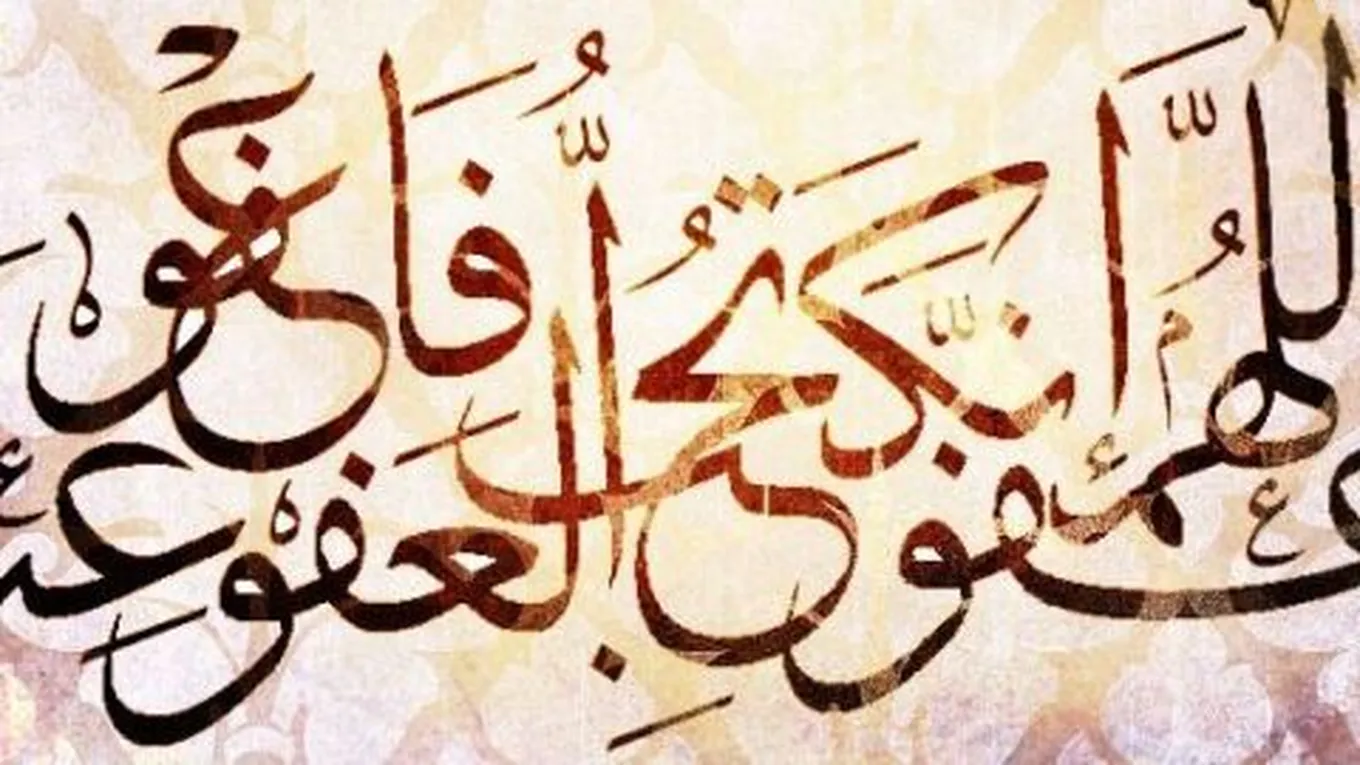 اللَّهُمَّ انَّكَ عفو تُحِبُّ العَفو فَاعْفو ع